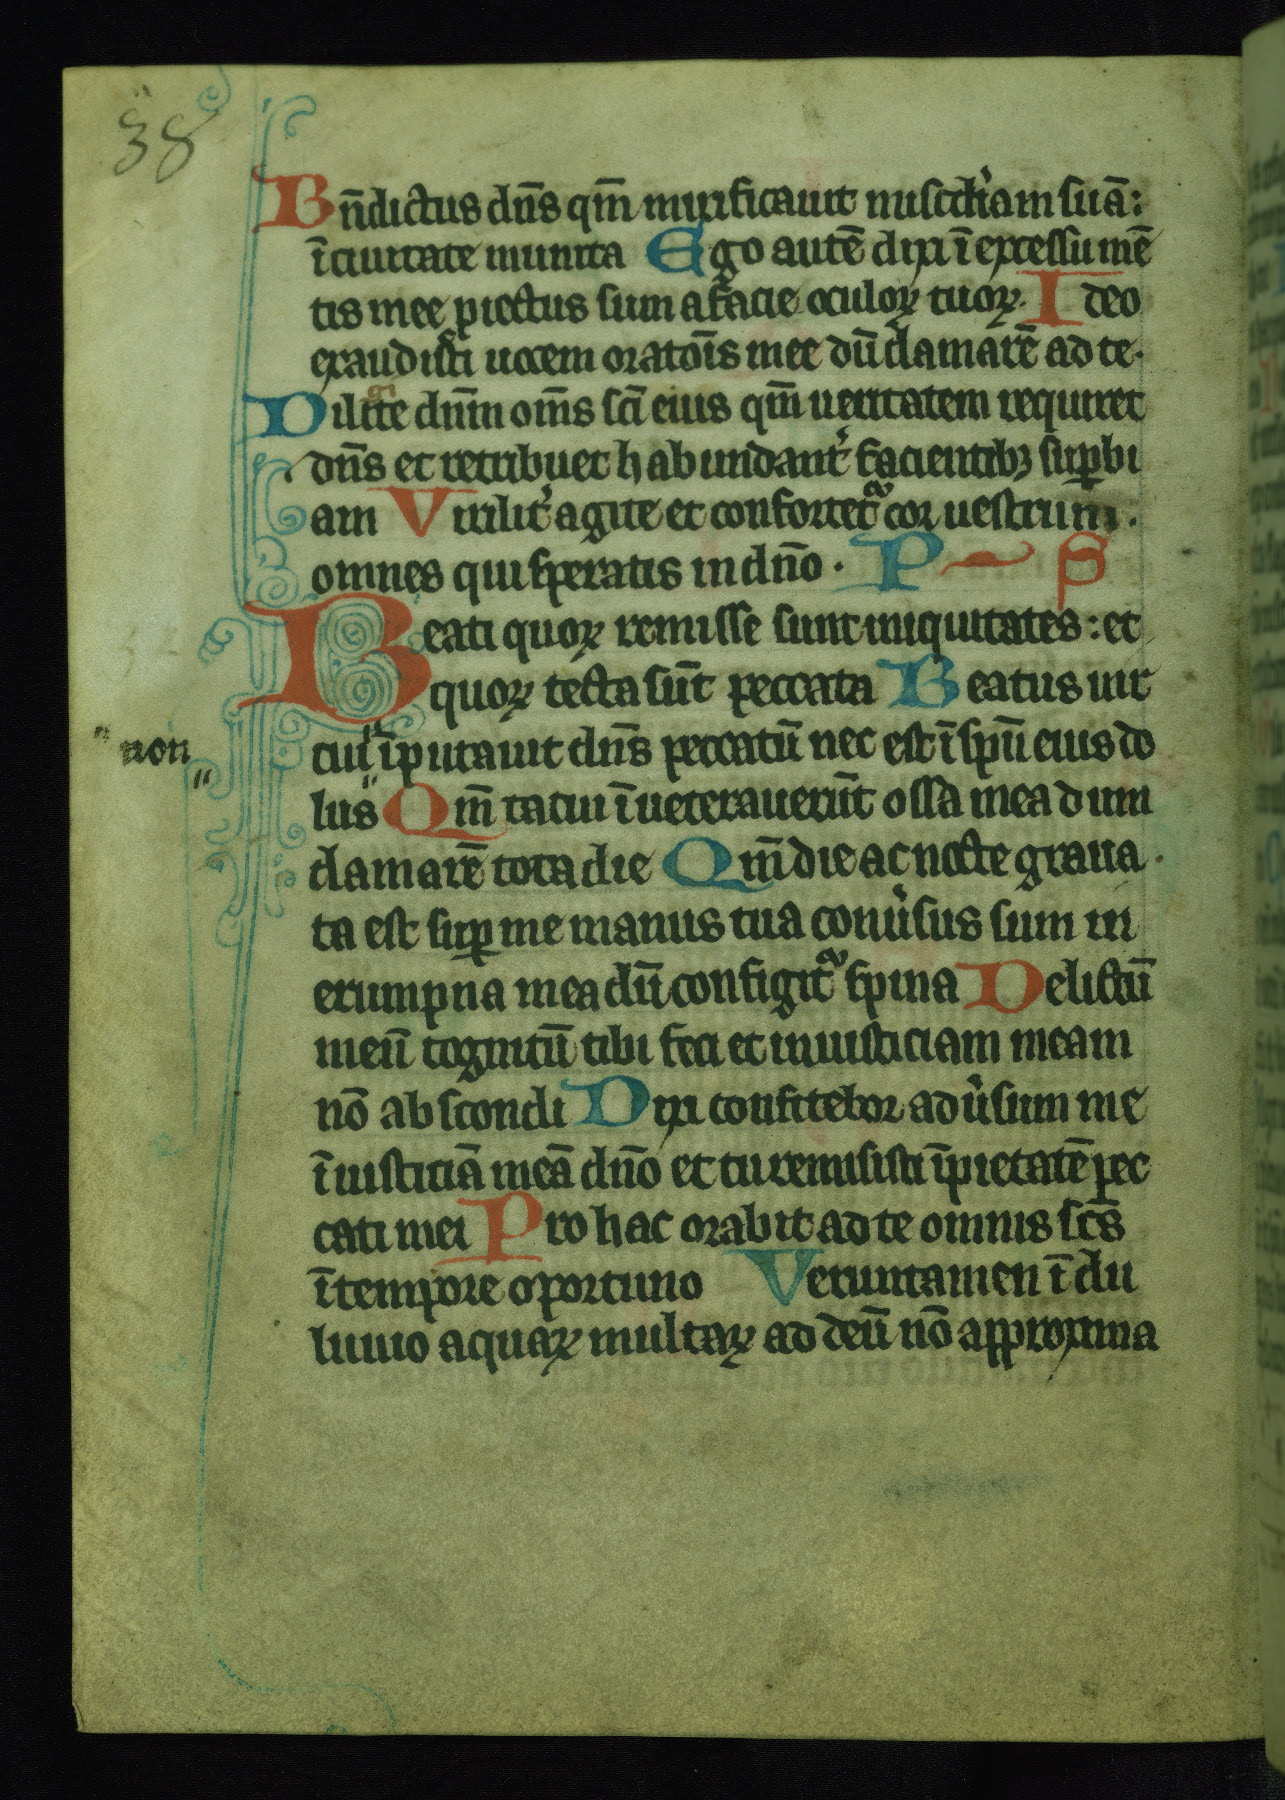 38
Bn̄dictus dn̄s qm̄ mirificauit misc̄diam suā:
ī ciuitate munita Ego autē dixi ī excessu mē
tis mee piectus sum a facie oculoꝝ tuoꝝ. Ideo
exaudisti uocem oratōis mee dū clamarē ad te.
Diligite dn̄m om̄s scī eius qm̄ ueritatem requiret
dn̄s et retribuet habundant̾ facientibꝫ suꝑbi
am Virilit̾ agite et confortet᷑ cor uestrum.
omnes qui speratis in dn̄o. P S
Beati quoꝝ remisse sunt iniquitates: et
quoꝝ tecta sūt peccata Beatus uir
cui īputauit dn̄s peccatū nec est ī spū eius do
non
lus Qm̄ tacui īueterauerūt ossa mea dum
clamarē tota die Qm̄ die ac nocte graua
ta est suꝑ me manus tua conu̾sus sum in
erumpna mea dū configit᷑ spina Delictū
meū cognitū tibi feci et iniusticiam meam
nō abscondi Dixi confitebor adu̾sum me
īiusticiā meā dn̄o et tu remisisti īpietatē pec
cati mei Pro hac orabit ad te omnis scs̄
ī tempore oportuno Veruntamen ī di
luuio aquaꝝ multaꝝ ad deū nō approxima